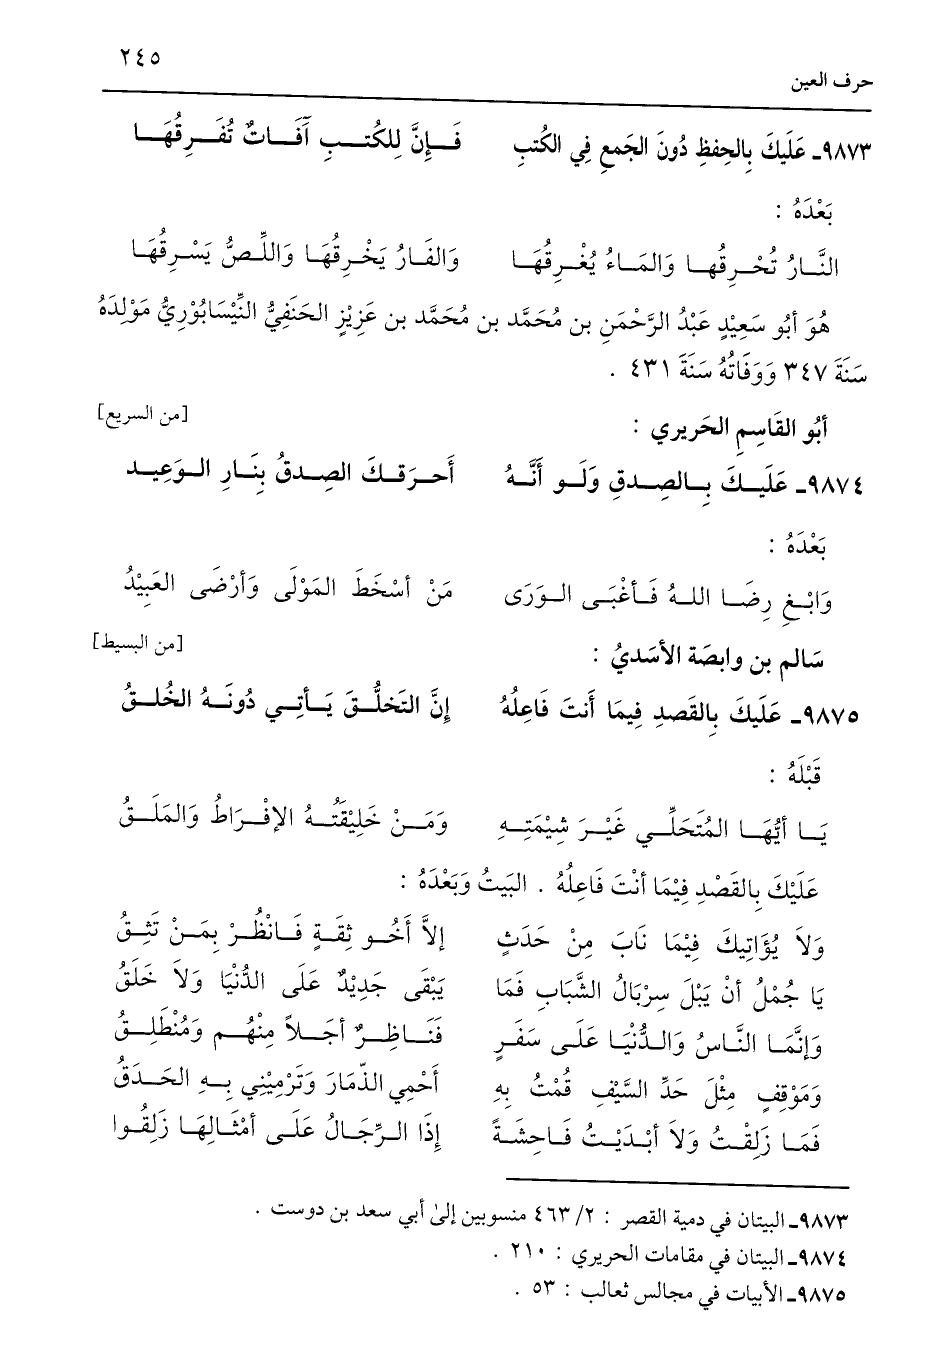 ٢٤٥
حرف العين
٩٨٧٣ـ عَلَيكَ بِالحِفظِ دُونَ الجَمعِ فِي الكُتبِ فَــإِنَّ لِلكُتــبِ آفَــاتٌ تُفَــرِقُهَــا
بَعْدَهُ :
النَّـارُ تُحْـرِقُـهـا وَالمَـاءُ يُغْـرِقُهَـا وَالفَـارُ يَخْـرِقُهَـا وَاللِّـصُّ يَسْـرِقُهَـا
هُوَ أَبُو سَعِيْدٍ عَبْدُ الرَّحْمَنِ بن مُحَمَّد بن مُحَمَّد بن عَزِيْزٍ الحَنَفِيُّ النِّيْسَابُوْرِيُّ مَوْلِدَهُ
سَنَةَ ٣٤٧ وَوَفَاتُهُ سَنَةَ ٤٣١ .
أَبُو القَاسِمِ الحَرِيري : [من السريع]
٩٨٧٤ـ عَلَيــكَ بِــالصِــدقِ وَلَــو أَنَّــهُ أَحــرَقــكَ الصِـدقُ بِنَـارِ الـوَعِيـد
بَعْدَهُ :
وَابْــغِ رِضَــا اللــهُ فَــأَغْبَــى الــوَرَى مَنْ أَسْخَطَ المَوْلَى وَأَرْضَى العَبِيْدُ
سَالم بن وابصَة الأَسَديُ : [من البسيط]
٩٨٧٥ـ عَلَيكَ بالقَصدِ فِيمَا أَنتَ فَاعِلُهُ إِنَّ التَخلُّــقَ يَــأتِــي دُونَــهُ الخُلــقُ
قَبْلَهُ :
يَــا أَيُّهَــا المُتَحَلِّــي غَيْــرَ شِيْمَتِــهِ وَمَــنْ خَلِيْقَتُــهُ الإِفْــرَاطُ وَالمَلَــقُ
عَلَيْكَ بِالقَصْدِ فِيْمَا أَنْتَ فَاعِلُهُ . البَيتُ وَبَعْدَهُ :
وَلاَ يُؤَاتِيكَ فِيْمَا نَابَ مِنْ حَدَثٍ إلاَّ أَخُــو ثِقَــةٍ فَــانْظُــرْ بِمَــنْ تَثِــقُ
يَا جُمْلُ أَنْ يَبْلَ سِرْبَالُ الشَّبَابِ فَمَا يَبْقَى جَدِيْدٌ عَلَى الدُّنْيَا وَلاَ خَلَقُ
وَإِنَّمَــا النَّـاسُ وَالـدُّنْيَـا عَلَـى سَفَـرٍ فَنَـاظِــرٌ أَجَــلاً مِنْهُــم وَمُنْطَلِــقُ
وَمَوْقِفٍ مِثْلَ حَدِّ السَّيْفِ قُمْتُ بِهِ أَحْمِي الذِّمَارَ وَتَرْمِيْنِي بِـهِ الحَـدَقُ
فَمَـا زَلِقْـتُ وَلاَ أَبْـدَيْـتُ فَـاحِشَـةً إِذَا الـرِّجَـالُ عَلَـى أَمْثَـالِهَـا زَلِقُـوا
٩٨٧٣ـ البيتان في دمية القصر : ٢/ ٤٦٣ منسوبين إلىٰ أبي سعد بن دوست .
٩٨٧٤ـ البيتان في مقامات الحريري : ٢١٠ .
٩٨٧٥ـ الأبيات في مجالس ثعالب : ٥٣ .